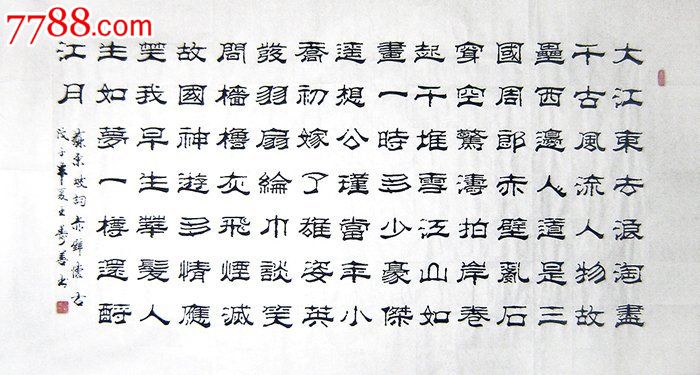 7788.com
大江東去浪淘盡
千古風流人物故
壘西邊人道是三
國周郎赤壁亂石
穿空驚濤拍岸卷
起千堆雪江山如
畫一時多少豪傑
遥想公瑾當年小
喬初嫁了雄姿英
發羽扇綸巾談笑
間檣櫓灰飛煙滅
故國神遊多情應
笑我早生華髮人
生如夢一樽還酹
江月
蘇東坡詞赤壁懷古